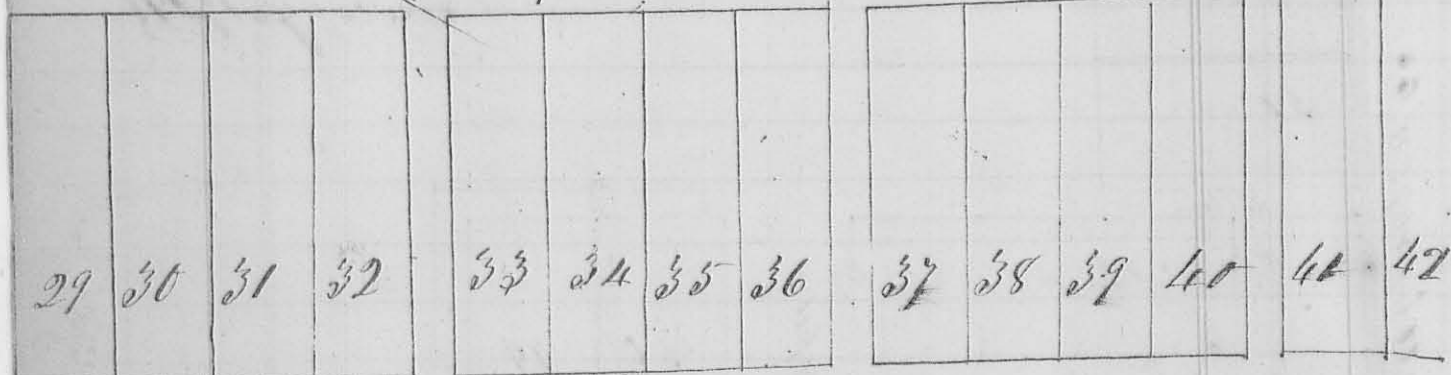 29 30 31 32 33 34 35 36 37 38 39 40 41 42